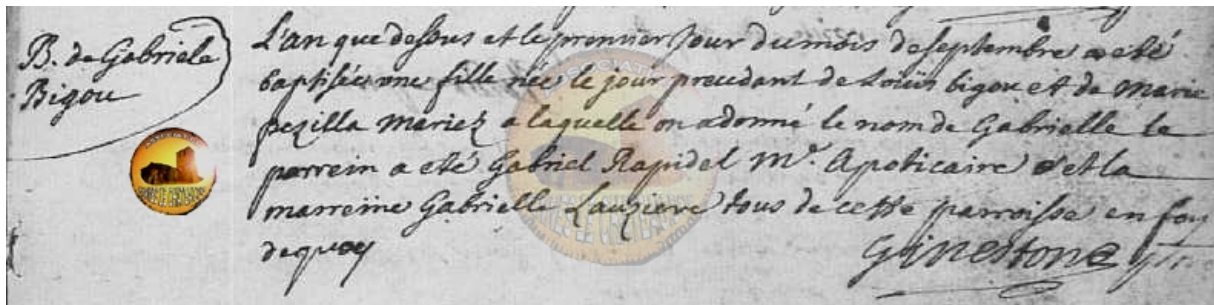 B. de Gabriele
Bigou
L'an que dessus et le premier jour du mois de septembre a eté
baptisée une fille née le jour precedant de Loüis bigou et de marie
pezilla mariez a laquelle on a donné le nom de Gabrielle le
parrein a eté Gabriel Rapidel Me. Apoticaire et la
marreine Gabrielle Lauziere tous de cette parroisse en foy
de quoy
Ginestone